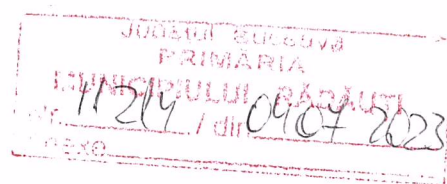 JUDEŢUL SUCEAVA
PRIMĂRIA
MUNICIPIULUI RĂDĂUŢI
Nr. 11214 / din 04 07 2023